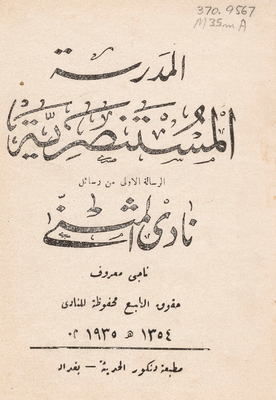 370.9567
M35mA
المدرسة
المستنصرية
الرسالة الاولى من رسائل
نادى المثنى
ناجى معروف
حقوق الطبع محفوظة للنادى
١٣٥٤ هـ ١٩٣٥ م
مطبعة دنكور الحديثة – بغداد